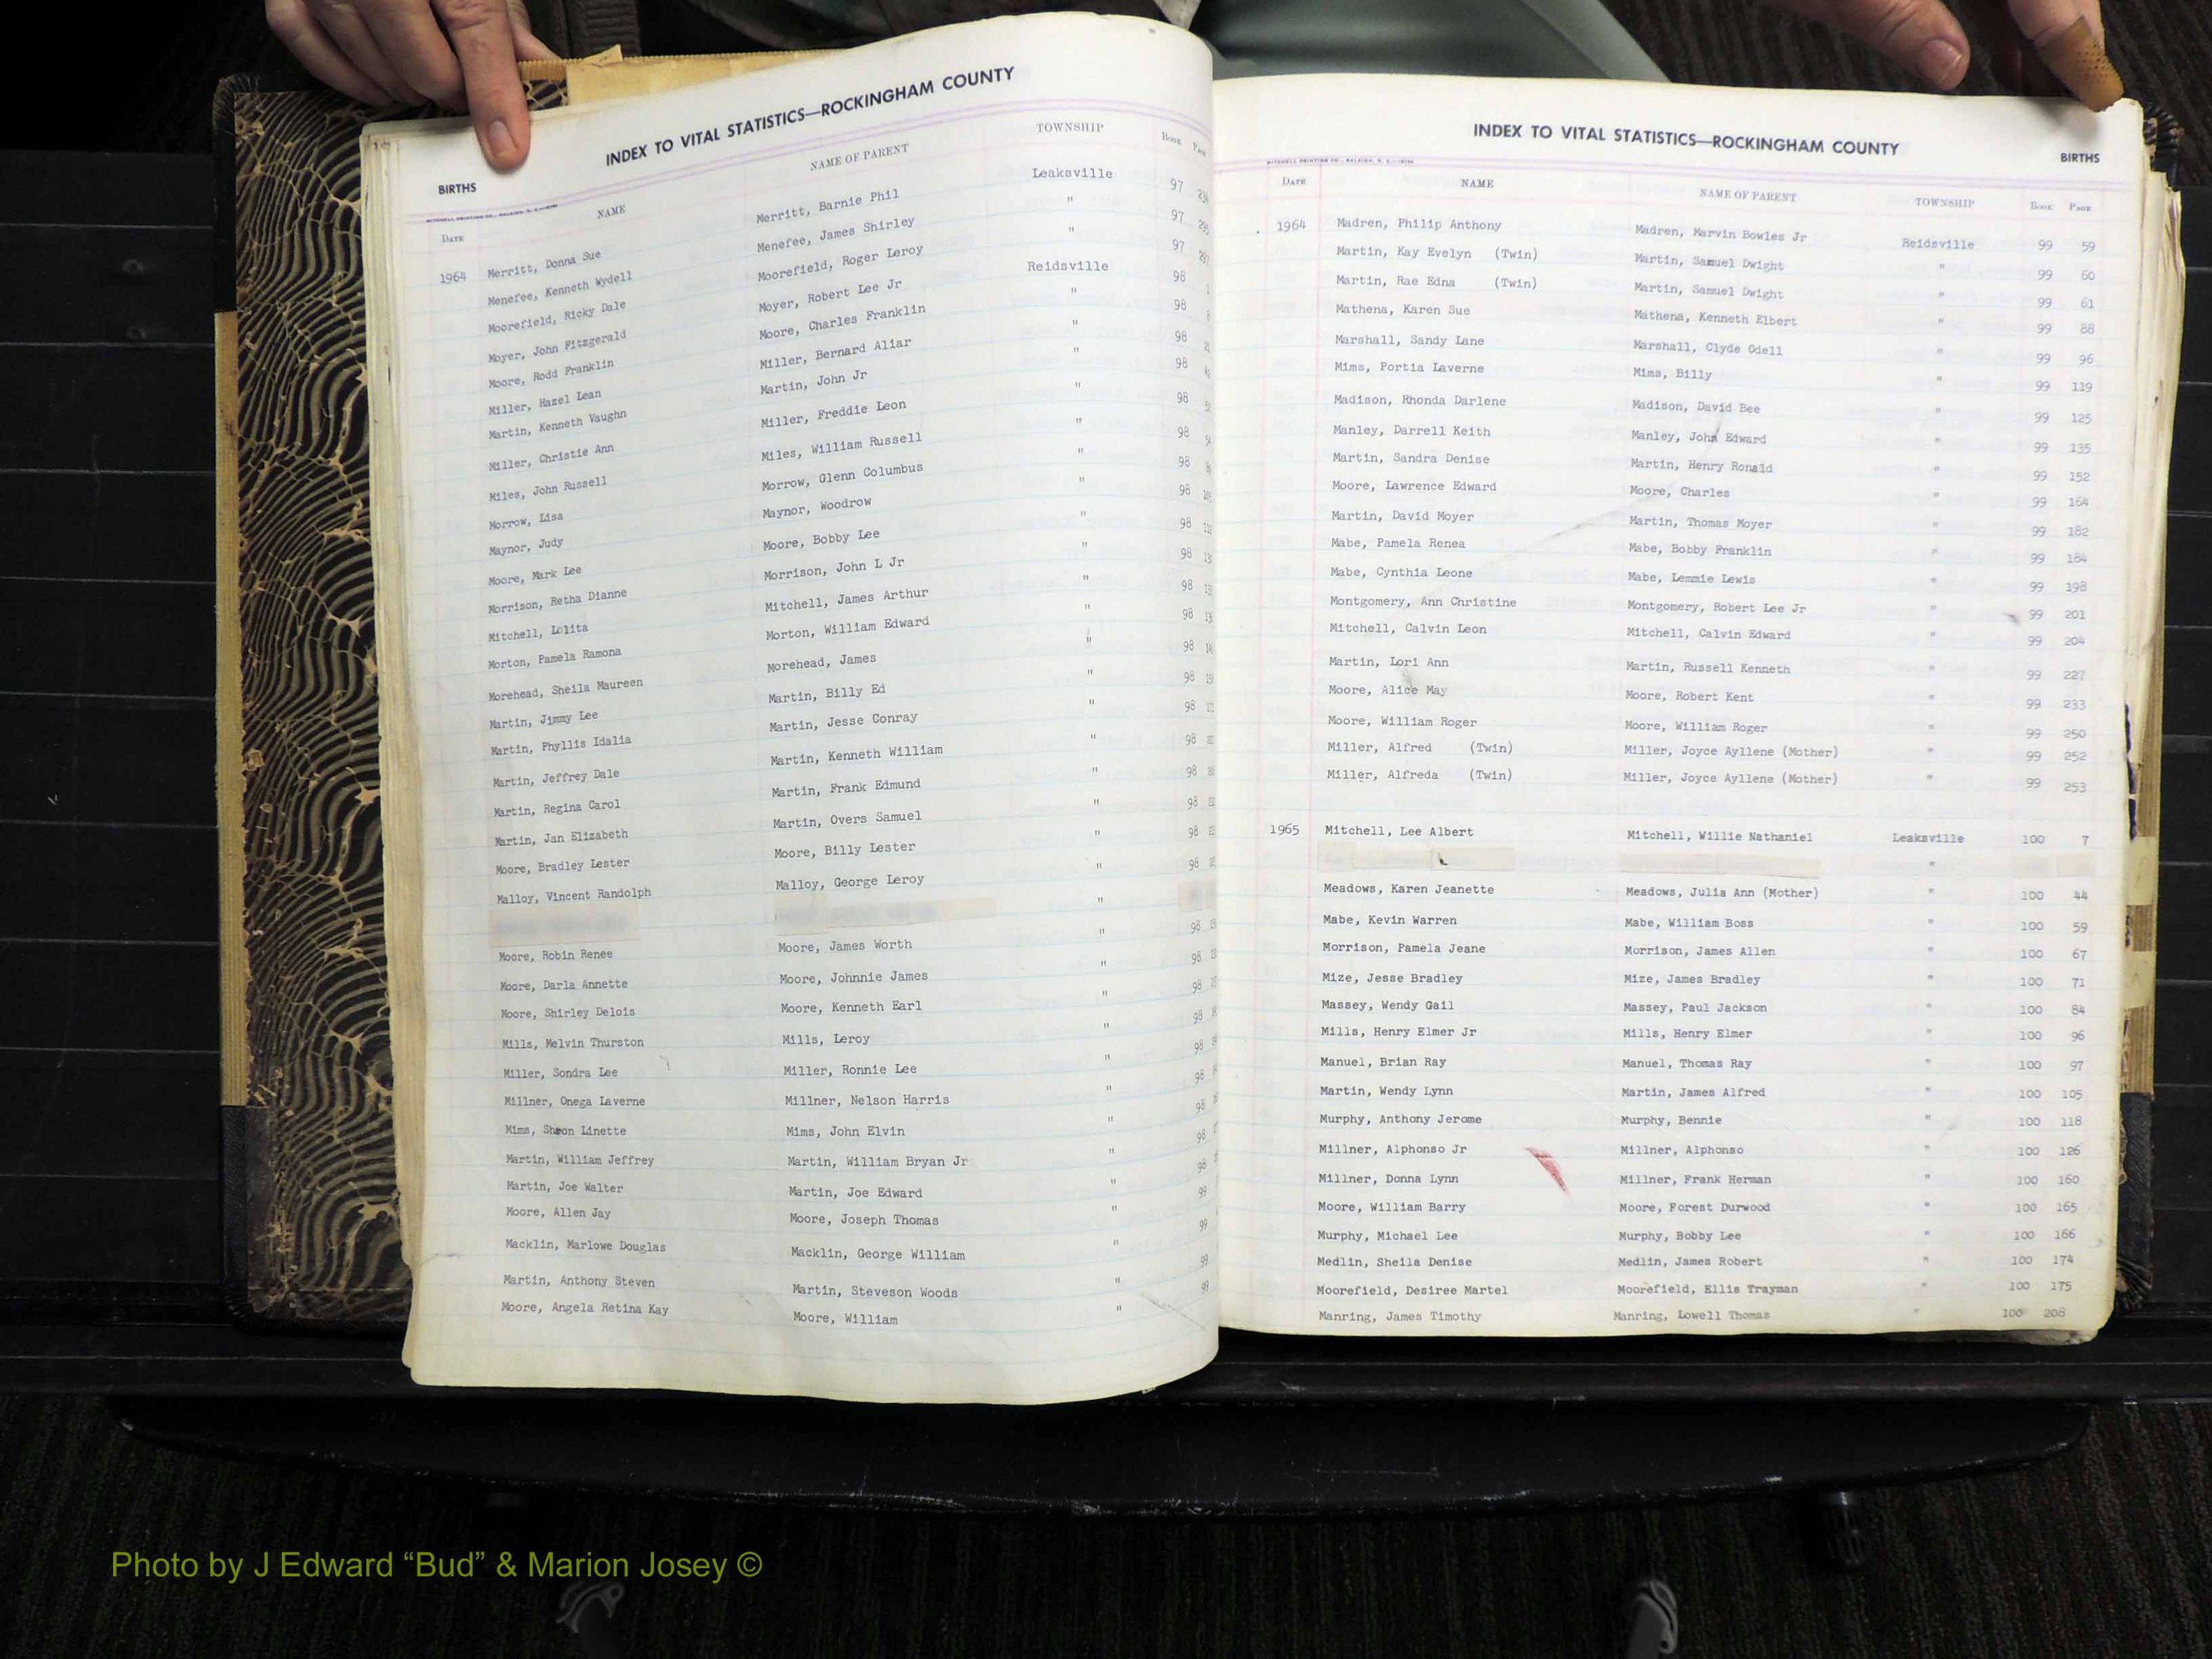 INDEX TO VITAL STATISTICS—ROCKINGHAM COUNTY
BIRTHS
DATE NAME NAME OF PARENT TOWNSHIP BOOK PAGE
1964 Merritt, Donna Sue Merritt, Barnie Phil Leaksville 97
Menefee, Kenneth Wydell Menefee, James Shirley " 97
Moorefield, Ricky Dale Moorefield, Roger Leroy " 97
Moyer, John Fitzgerald Moyer, Robert Lee Jr Reidsville 98
Moore, Rodd Franklin Moore, Charles Franklin " 98
Miller, Hazel Lean Miller, Bernard Aliar " 98
Martin, Kenneth Vaughn Martin, John Jr " 98
Miller, Christie Ann Miller, Freddie Leon " 98
Miles, John Russell Miles, William Russell " 98
Morrow, Lisa Morrow, Glenn Columbus " 98
Maynor, Judy Maynor, Woodrow " 98
Moore, Mark Lee Moore, Bobby Lee " 98
Morrison, Retha Dianne Morrison, John L Jr " 98
Mitchell, Lolita Mitchell, James Arthur " 98
Morton, Pamela Ramona Morton, William Edward " 98
Morehead, Sheila Maureen Morehead, James " 98
Martin, Jimmy Lee Martin, Billy Ed " 98
Martin, Phyllis Idalia Martin, Jesse Conray " 98
Martin, Jeffrey Dale Martin, Kenneth William " 98
Martin, Regina Carol Martin, Frank Edmund " 98
Martin, Jan Elizabeth Martin, Overs Samuel " 98
Moore, Bradley Lester Moore, Billy Lester " 98
Malloy, Vincent Randolph Malloy, George Leroy " 98
"
Moore, Robin Renee Moore, James Worth " 98
Moore, Darla Annette Moore, Johnnie James " 98
Moore, Shirley Delois Moore, Kenneth Earl " 98
Mills, Melvin Thurston Mills, Leroy " 98
Miller, Sondra Lee Miller, Ronnie Lee " 98
Millner, Onega Laverne Millner, Nelson Harris " 98
Mims, Sharon Linette Mims, John Elvin " 98
Martin, William Jeffrey Martin, William Bryan Jr " 98
Martin, Joe Walter Martin, Joe Edward " 98
Moore, Allen Jay Moore, Joseph Thomas " 99
Macklin, Marlowe Douglas Macklin, George William " 99
Martin, Anthony Steven Martin, Steveson Woods " 99
Moore, Angela Retina Kay Moore, William " 99
INDEX TO VITAL STATISTICS—ROCKINGHAM COUNTY
BIRTHS
MITCHELL PRINTING CO., RALEIGH, N. C.
DATE NAME NAME OF PARENT TOWNSHIP BOOK PAGE
1964 Madren, Philip Anthony Madren, Marvin Bowles Jr Reidsville 99 59
Martin, Kay Evelyn (Twin) Martin, Samuel Dwight " 99 60
Martin, Rae Edna (Twin) Martin, Samuel Dwight " 99 61
Mathena, Karen Sue Mathena, Kenneth Elbert " 99 88
Marshall, Sandy Lane Marshall, Clyde Odell " 99 96
Mims, Portia Laverne Mims, Billy " 99 119
Madison, Rhonda Darlene Madison, David Bee " 99 125
Manley, Darrell Keith Manley, John Edward " 99 135
Martin, Sandra Denise Martin, Henry Ronald " 99 152
Moore, Lawrence Edward Moore, Charles " 99 164
Martin, David Moyer Martin, Thomas Moyer " 99 182
Mabe, Pamela Renea Mabe, Bobby Franklin " 99 184
Mabe, Cynthia Leone Mabe, Lemmie Lewis " 99 198
Montgomery, Ann Christine Montgomery, Robert Lee Jr " 99 201
Mitchell, Calvin Leon Mitchell, Calvin Edward " 99 204
Martin, Lori Ann Martin, Russell Kenneth " 99 227
Moore, Alice May Moore, Robert Kent " 99 233
Moore, William Roger Moore, William Roger " 99 250
Miller, Alfred (Twin) Miller, Joyce Ayllene (Mother) " 99 252
Miller, Alfreda (Twin) Miller, Joyce Ayllene (Mother) " 99 253
1965 Mitchell, Lee Albert Mitchell, Willie Nathaniel Leaksville 100 7
"
Meadows, Karen Jeanette Meadows, Julia Ann (Mother) " 100 44
Mabe, Kevin Warren Mabe, William Boss " 100 59
Morrison, Pamela Jeane Morrison, James Allen " 100 67
Mize, Jesse Bradley Mize, James Bradley " 100 71
Massey, Wendy Gail Massey, Paul Jackson " 100 84
Mills, Henry Elmer Jr Mills, Henry Elmer " 100 96
Manuel, Brian Ray Manuel, Thomas Ray " 100 97
Martin, Wendy Lynn Martin, James Alfred " 100 105
Murphy, Anthony Jerome Murphy, Bennie " 100 118
Millner, Alphonso Jr Millner, Alphonso " 100 126
Millner, Donna Lynn Millner, Frank Herman " 100 160
Moore, William Barry Moore, Forest Durwood " 100 165
Murphy, Michael Lee Murphy, Bobby Lee " 100 166
Medlin, Sheila Denise Medlin, James Robert " 100 174
Moorefield, Desiree Martel Moorefield, Ellis Trayman " 100 175
Manring, James Timothy Manring, Lowell Thomas " 100 208
Photo by J Edward “Bud” & Marion Josey ©